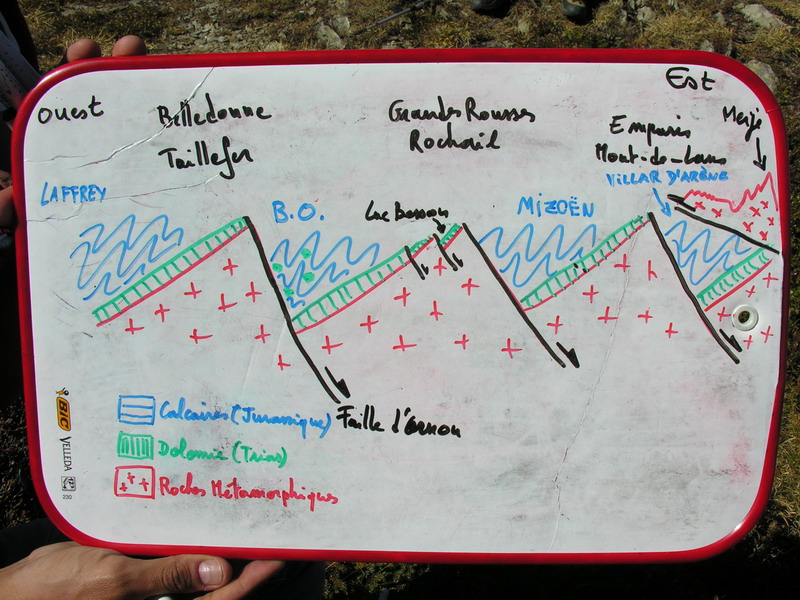 Ouest
Est
Belledonne
Taillefer
Grandes Rousses
Rochail
Emparis
Mont-de-Lans
VILLAR D'ARÈNE
Meije
LAFFREY
B.O.
Lac Besson
MIZOËN
Calcaires (Jurassique)
Faille d'Ornon
Dolomie (Trias)
Roches Métamorphiques
BIC
VELLEDA
230